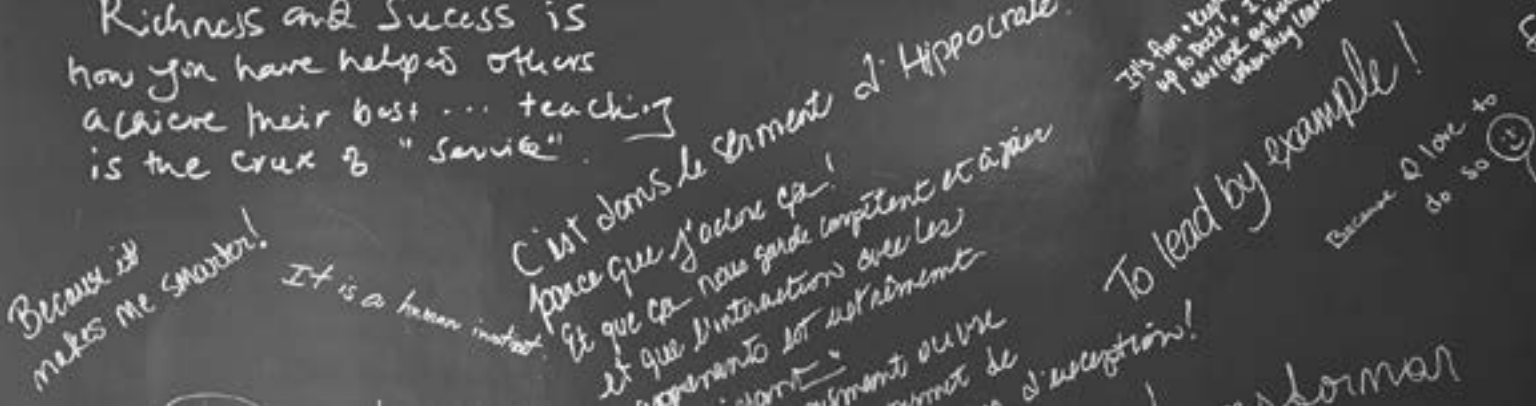 Richness and Sucess is
how you have helped others
achieve their best ... teaching
is the crux of "Service".
Because it
makes me smarter!
It is a human instinct.
C'est dans le serment d'Hippocrate.
parce que j'adore ça!
Et que ça nous garde compétent et à jour
et que l'interaction avec les
apprenants est extrêmement
ouvre
de
d'exception!
It's fun + keeps
up to date, + I
the look on their
when they learn
To lead by example!
Because I love to
do so